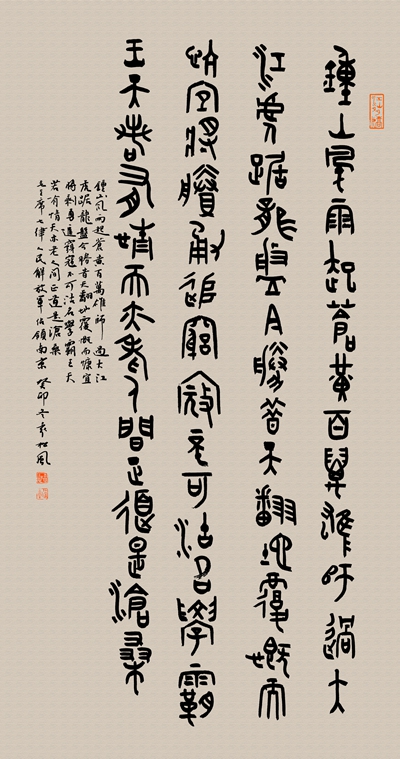 鐘山風雨起蒼黃百萬雄師過大
江虎踞龍盤今勝昔天翻地覆慨而
慷宜將剩勇追窮寇不可沽名學霸
王天若有情天亦老人間正道是滄桑
鐘山風雨起蒼黃百萬雄師過大江
虎踞龍盤今勝昔天翻地覆慨而慷宜
將剩勇追窮寇不可沽名學霸王天
若有情天亦老人間正道是滄桑
毛主席七律人民解放軍佔領南京 癸卯冬 松風